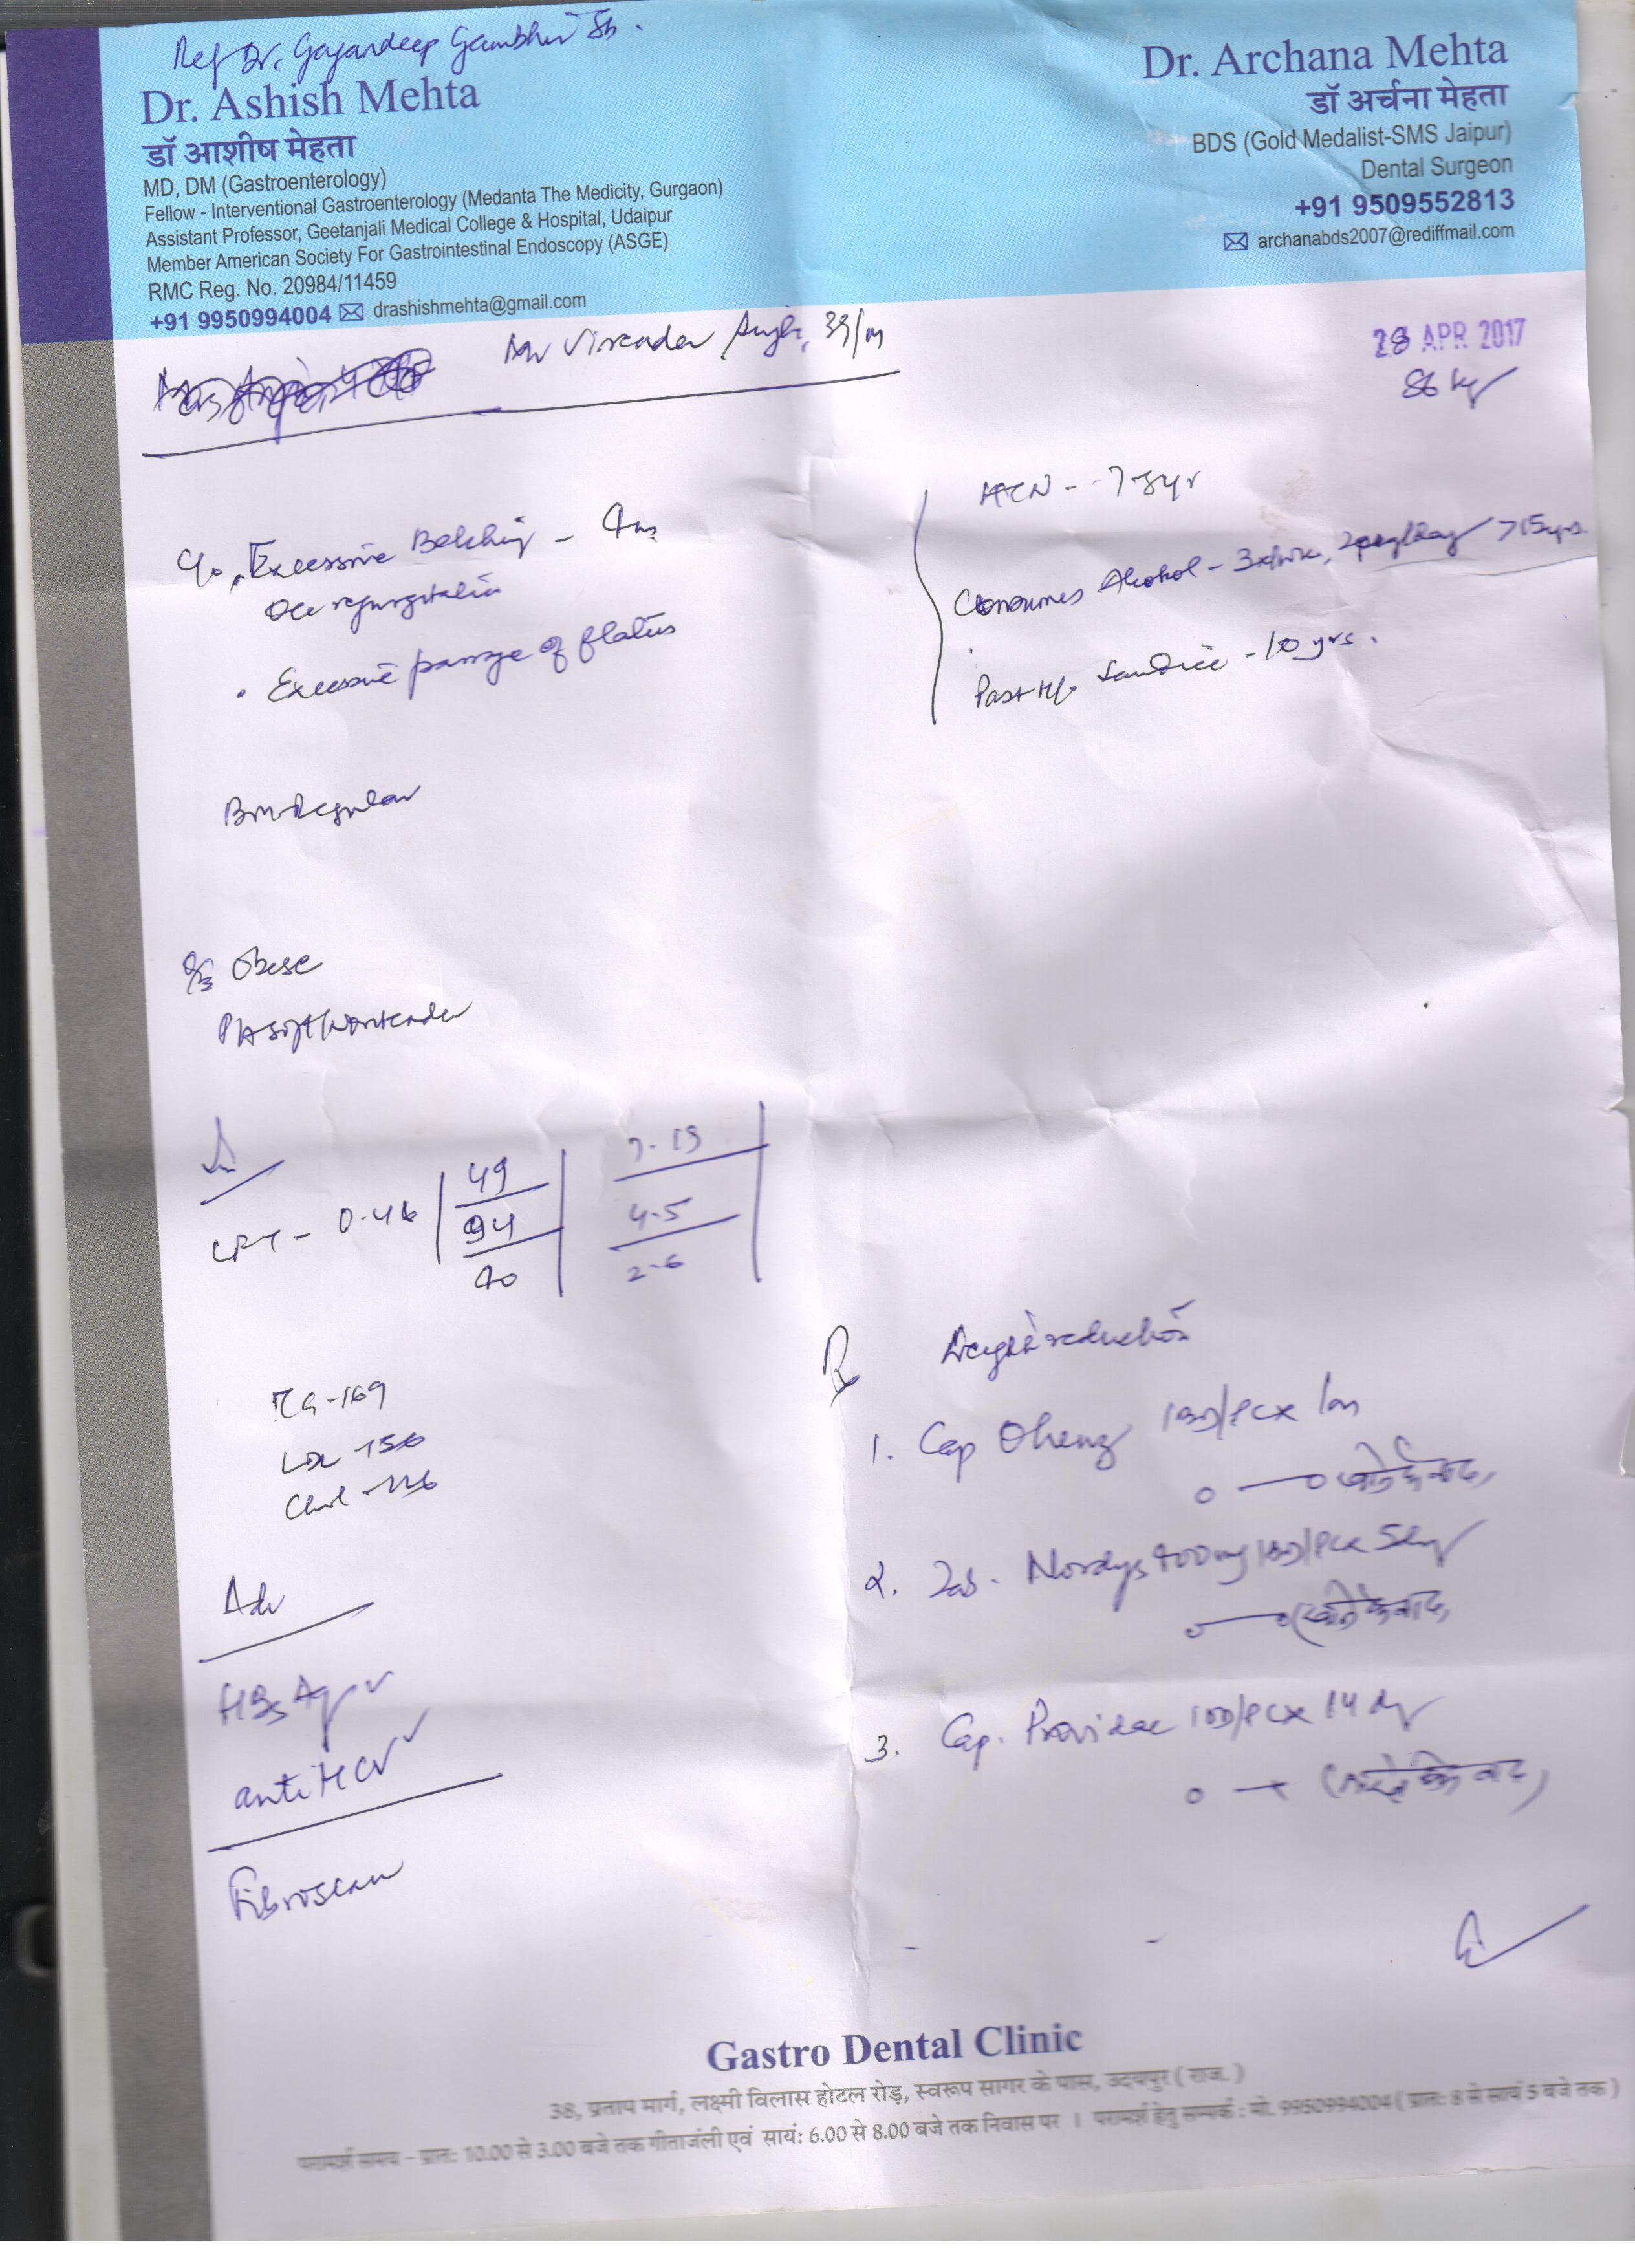 Ref Dr. Gagandeep Gambhir Sb.
Dr. Ashish Mehta
डॉ आशीष मेहता
MD, DM (Gastroenterology)
Fellow - Interventional Gastroenterology (Medanta The Medicity, Gurgaon)
Assistant Professor, Geetanjali Medical College & Hospital, Udaipur
Member American Society For Gastrointestinal Endoscopy (ASGE)
RMC Reg. No. 20984/11459
+91 9950994004 drashishmehta@gmail.com
Dr. Archana Mehta
डॉ अर्चना मेहता
BDS (Gold Medalist-SMS Jaipur)
Dental Surgeon
+91 9509552813
archanabds2007@rediffmail.com
Mr Virender Singh, 39/m
28 APR 2017
86 kg
C/o Excessive Belching -
Occ regurgitation
• Excessive passage of flatus
BM-Regular
HTN - 7-8yr
Consumes Alcohol - 3x/wk, >15yrs.
Past H/o Jaundice - 10 yrs.
O/E Obese
P/A soft/nontender
LFT - 0.46
49
94
90
7.19
4.5
2.6
TG-169
LDL-156
Chol -
Adv
HBsAg ✓
anti HCV ✓
Fibroscan
Rx Weight reduction
1. Cap 1BD/PC x 1m
खाने के बाद
2. Tab. 400mg 1BD/PC x 5day
(खाने के बाद)
3. Cap. Providac 1BD/PC x 14 day
(खाने के बाद)
Gastro Dental Clinic
38, प्रताप मार्ग, लक्ष्मी विलास होटल रोड़, स्वरूप सागर के पास, उदयपुर ( राज. )
परामर्श समय - प्रातः 10.00 से 3.00 बजे तक गीतांजंली एवं सायं: 6.00 से 8.00 बजे तक निवास पर । परामर्श हेतु सम्पर्क : मो. 9950994004 ( प्रातः 8 से सायं 5 बजे तक )